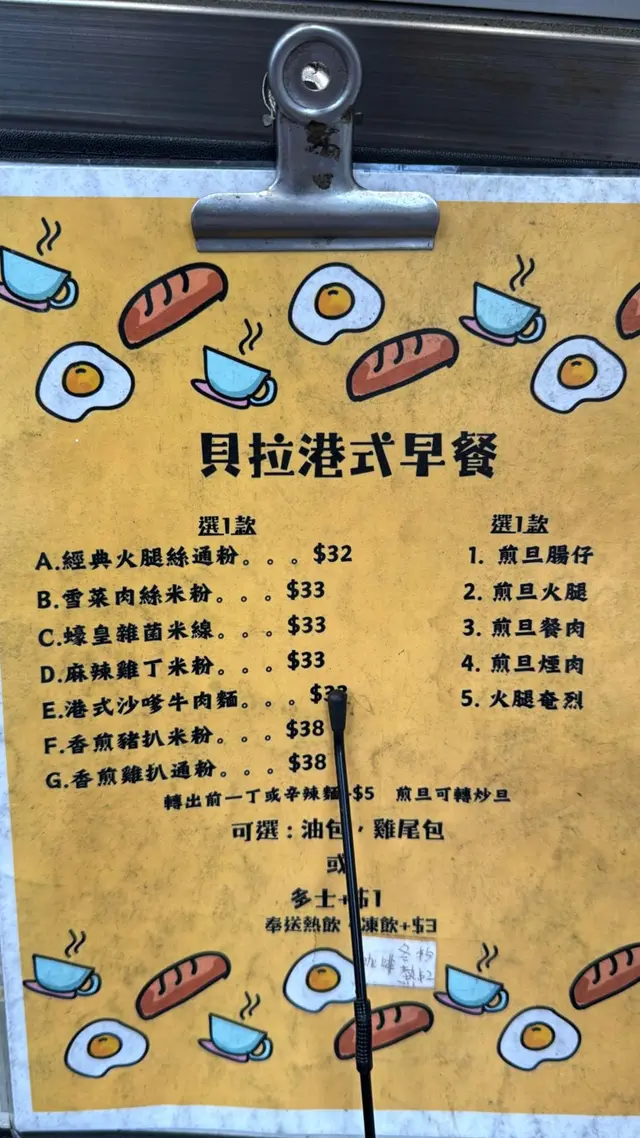 貝拉港式早餐
選1款
A.經典火腿絲通粉。。。$32
B.雪菜肉絲米粉。。。$33
C.蠔皇雜菌米線。。。$33
D.麻辣雞丁米粉。。。$33
E.港式沙嗲牛肉麵。。。$33
F.香煎豬扒米粉。。。$38
G.香煎雞扒通粉。。。$38
選1款
1. 煎旦腸仔
2. 煎旦火腿
3. 煎旦餐肉
4. 煎旦煙肉
5. 火腿奄烈
轉出前一丁或辛辣麵+$5 煎旦可轉炒旦
可選：油包，雞尾包
或
多士+$1
奉送熱飲，凍飲+$3